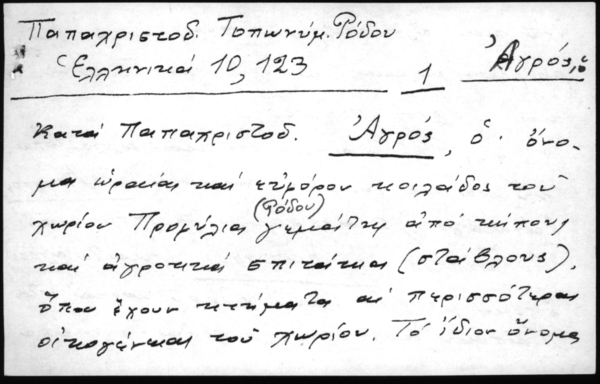 Παπαχριστοδ. Τοπωνύμ. Ρόδου
Ἑλληνικά 10, 123 1 Ἀγρός, ὁ
Κατά Παπαχριστοδ. Ἀγρός, ὁ· ὄνο-
μα ὡραίας καί εὐφόρου κοιλάδος τοῦ
χωρίου Προμύλια (Ρόδου) γεμάτη ἀπό κήπους
καί ἀγροτικά σπιτάκια (στάβλους),
ὅπου ἔχουν κτήματα αἱ περισσότεραι
οἰκογένειαι τοῦ χωρίου. Τό ἴδιον ὄνομα